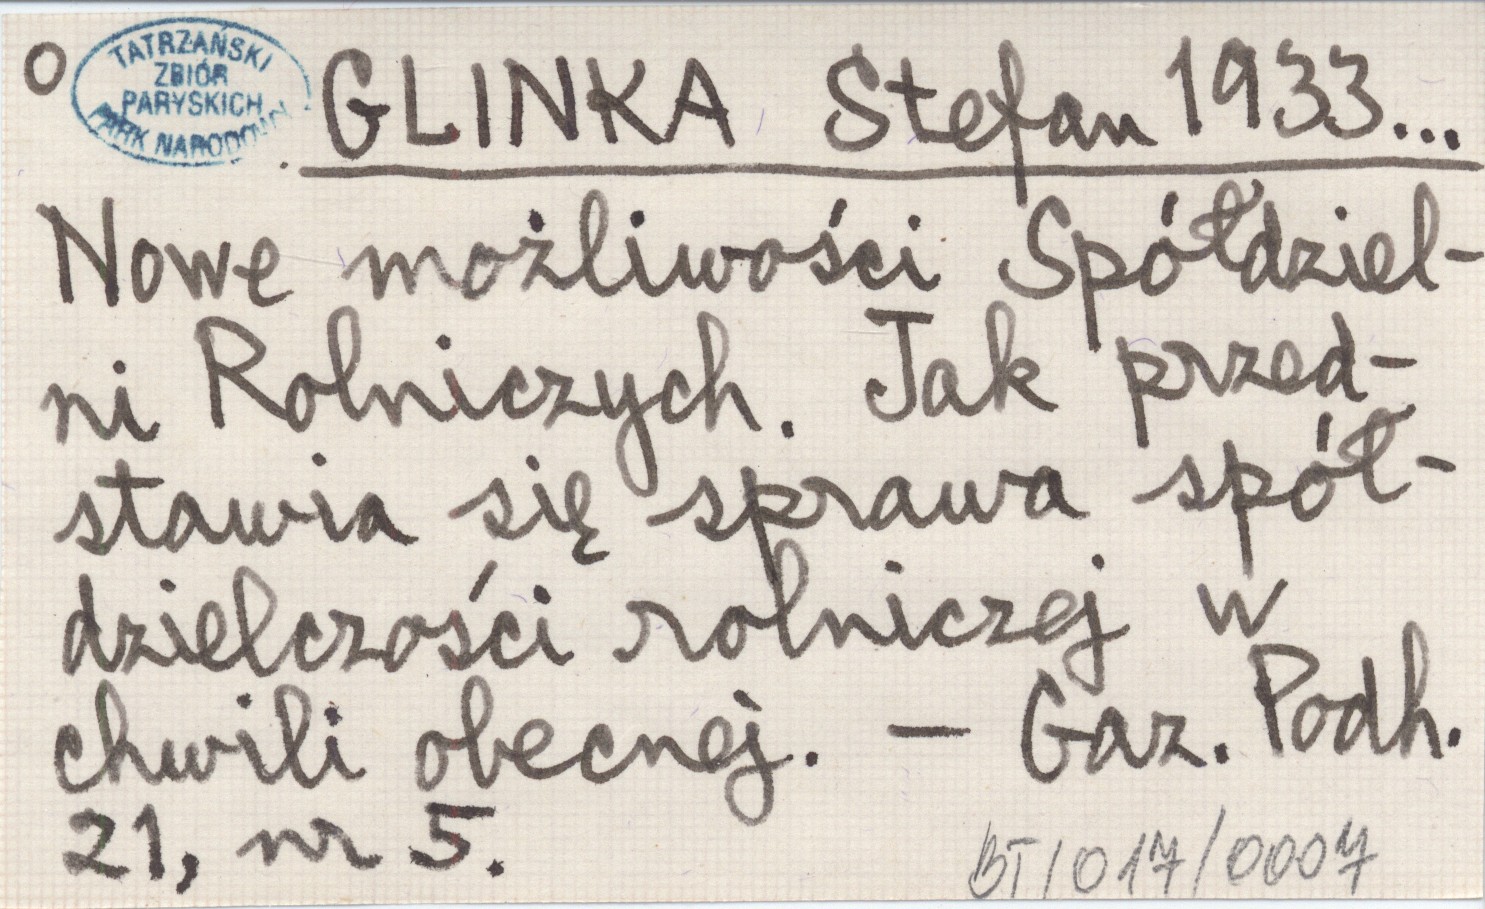 O
TATRZAŃSKI
ZBIÓR
PARYSKICH
PARK NARODOWY
GLINKA Stefan 1933...
Nowe możliwości Spółdziel-
ni Rolniczych. Jak przed-
stawia się sprawa spół-
dzielczości rolniczej w
chwili obecnej. — Gaz. Podh.
21, nr 5.
BT/017/0007